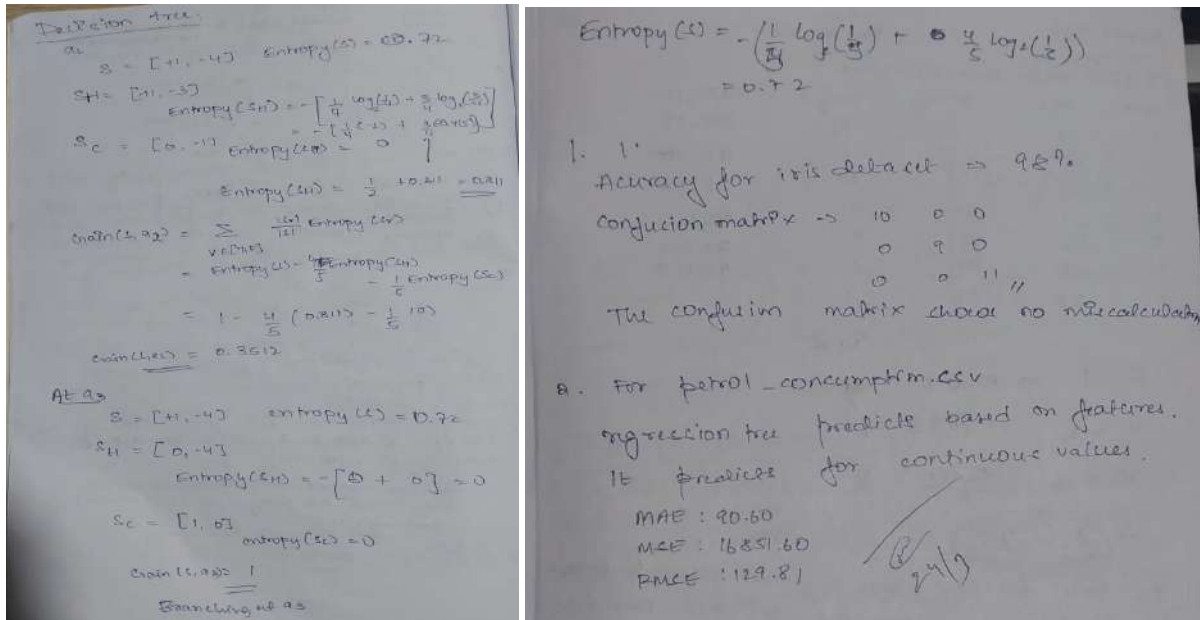 Decision tree.
a2
S = [+1, -4] Entropy(S) = 0.72
SH = [+1, -3]
Entropy(SH) = -[1/4 log(1/4) + 3/4 log2(3/4)]
= -[1/4(-2) + 3/4
SC = [0, -1] Entropy(SC) = 0
Entropy(SH) = 1/2 + 0.311 = 0.811
Gain(S, a2) = Σ |Sv|/|S| Entropy(Sv)
= Entropy(S) - 4/5 Entropy(SH) - 1/5 Entropy(SC)
= 1 - 4/5 (0.811) - 1/5 (0)
Gain(S, a2) = 0.3512
At a3
S = [+1, -4] entropy(S) = 0.72
SH = [0, -4]
Entropy(SH) = -[0 + 0] = 0
SC = [1, 0]
entropy(SC) = 0
Gain(S, a3) = 1
Branching at a3
Entropy(S) = -(1/5 log(1/5) + 4/5 log2(1/5))
= 0.72
1. 1.
Acuracy for iris dataset => 98%
Confusion matrix -> 10 0 0
0 9 0
0 0 11 //
The confusion matrix shows no miscalculation
2. For petrol_consumption.csv
regression tree predicts based on features.
It predicts for continuous values.
MAE : 90.60
MSE : 16851.60
RMSE : 129.81
24/3